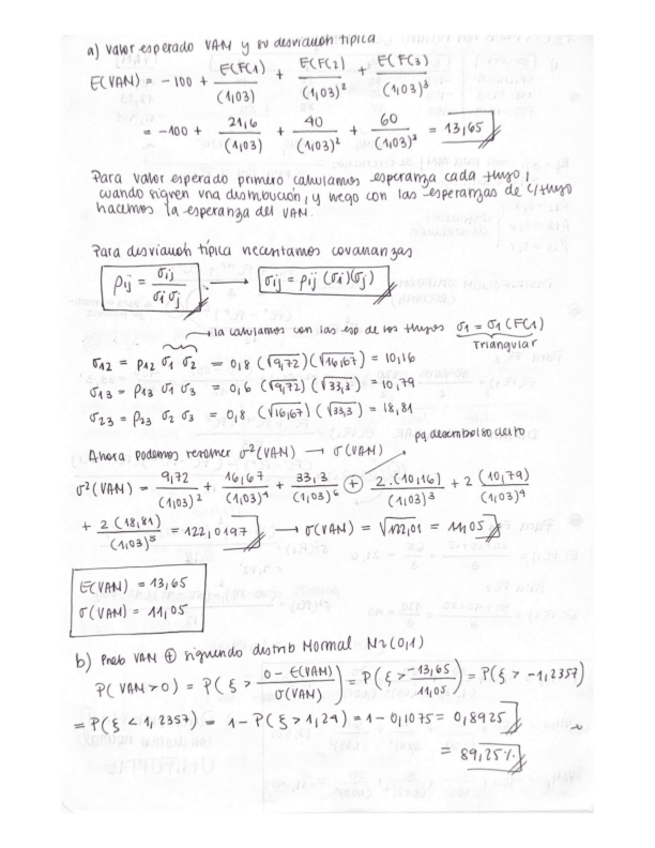 a) Valor esperado VAN y su desviación típica
E(VAN) = -100 + E(FC1)/(1,03) + E(FC2)/(1,03)² + E(FC3)/(1,03)³
= -100 + 21,6/(1,03) + 40/(1,03)² + 60/(1,03)³ = 13,65
Para valor esperado primero calculamos esperanza cada flujo,
cuando siguen una distribución, y luego con las esperanzas de c/flujo
hacemos la esperanza del VAN.
Para desviación típica necesitamos covarianzas
ρij = σij/σiσj → σij = ρij (σi)(σj)
→ la calculamos con las de los flujos σ1 = σ1 (FC1)
Triangular
σ12 = ρ12 σ1 σ2 = 0,8 (√9,72)(√16,67) = 10,16
σ13 = ρ13 σ1 σ3 = 0,6 (√9,72)(√33,3) = 10,79
σ23 = ρ23 σ2 σ3 = 0,8 (√16,67)(√33,3) = 18,81
pq desembolso cierto
Ahora podemos resolver σ²(VAN) → σ(VAN)
σ²(VAN) = 9,72/(1,03)² + 16,67/(1,03)⁴ + 33,3/(1,03)⁶ + 2.(10,16)/(1,03)³ + 2 (10,79)/(1,03)⁴
+ 2(18,81)/(1,03)⁵ = 122,0197 → σ(VAN) = √122,01 = 11,05
E(VAN) = 13,65
σ(VAN) = 11,05
b) Prob VAN ⊕ siguiendo distrib Normal N(0,1)
P(VAN>0) = P(ξ > 0 - E(VAN)/σ(VAN)) = P(ξ > -13,65/11,05) = P(ξ > -1,2357)
= P(ξ < 1,2357) = 1 - P(ξ > 1,24) = 1 - 0,1075 = 0,8925
= 89,25%